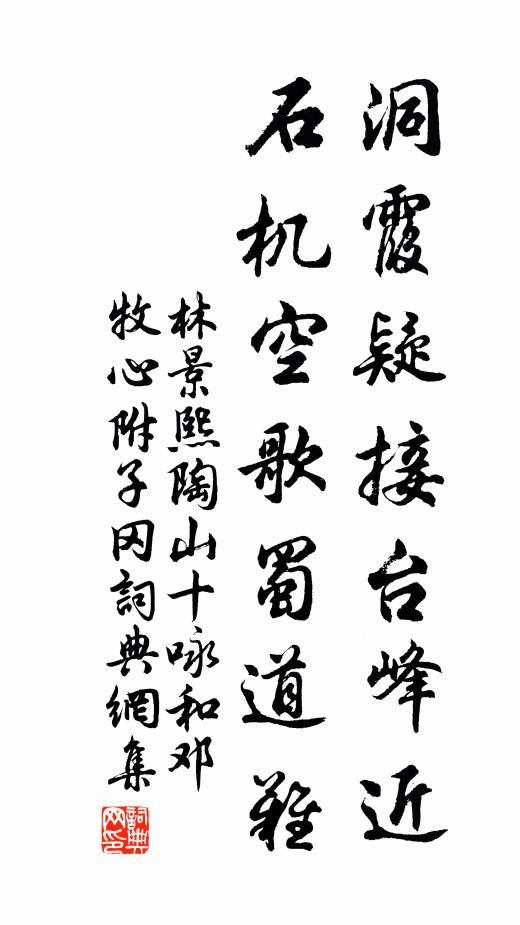 洞霞疑接台峰近
石机空歌蜀道難
林景熙陶山十咏和邓
牧心附子冈詞典網集
詞典网印